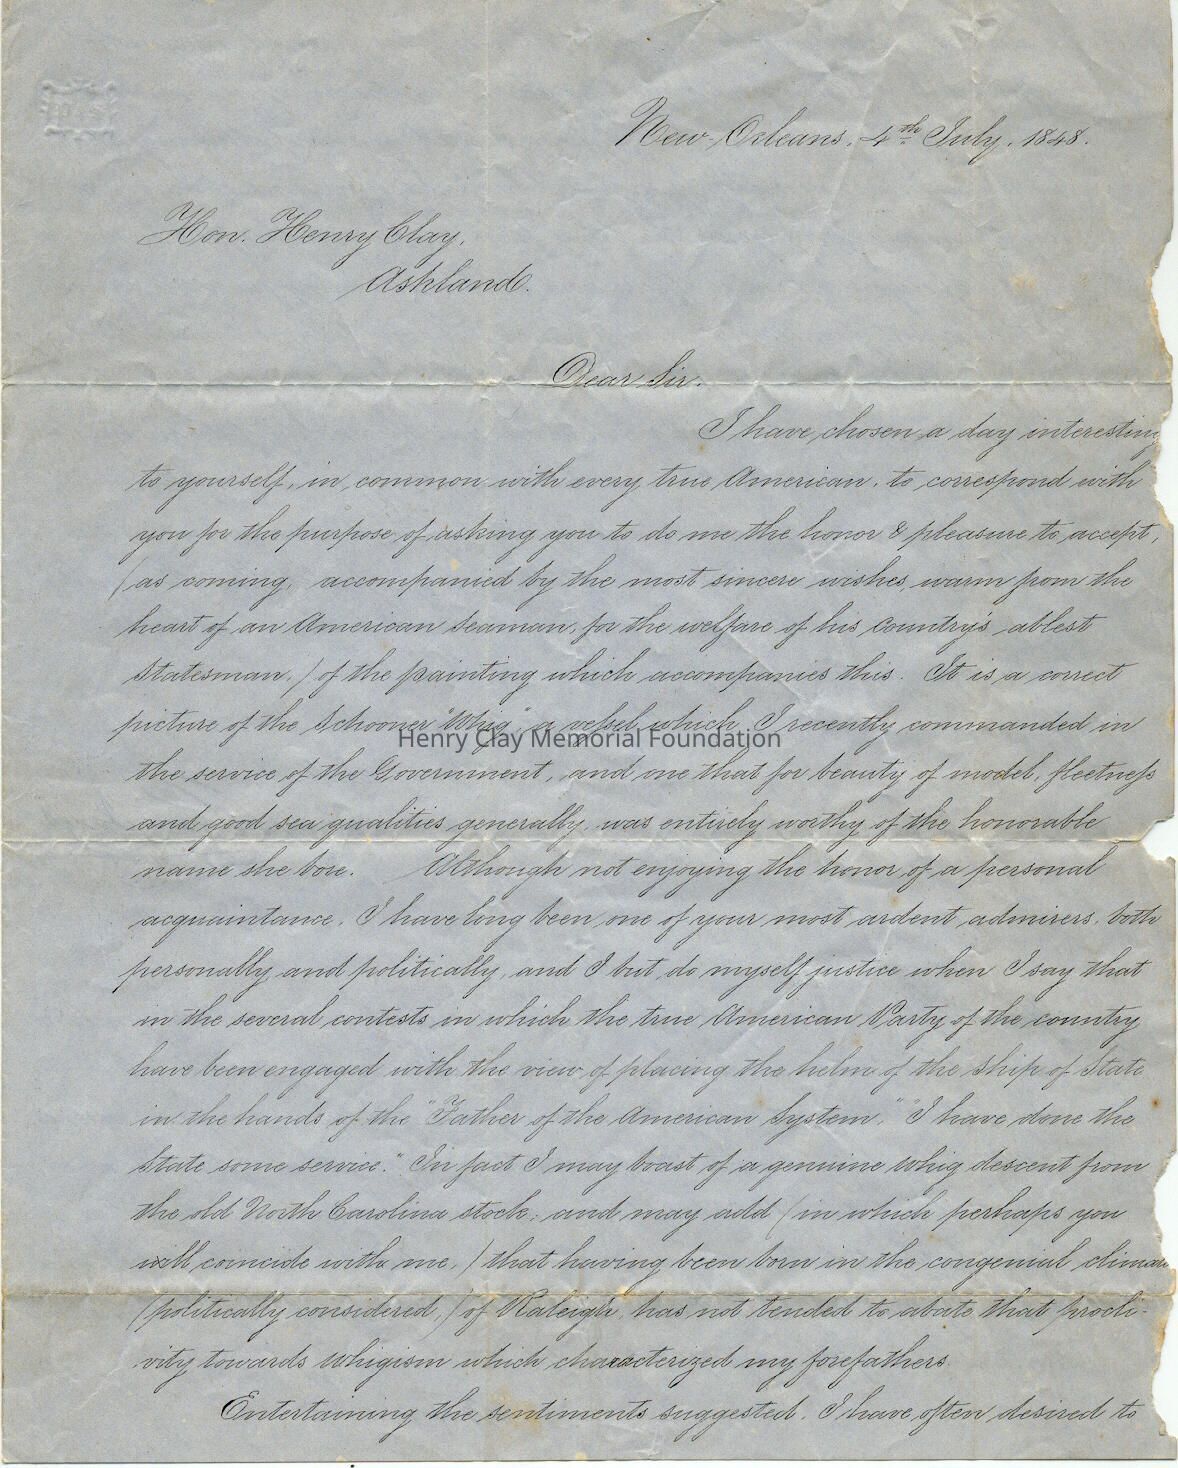 New Orleans, 4th July, 1848.
Hon. Henry Clay,
Ashland.
Dear Sir.
I have chosen a day interesting
to yourself, in common with every true American, to correspond with
you for the purpose of asking you to do me the honor & pleasure to accept,
(as coming, accompanied by the most sincere wishes, warm from the
heart of an American Seaman, for the welfare of his Country's ablest
Statesman,) of the painting which accompanies this. It is a correct
picture of the Schooner "Whig", a vessel which I recently commanded in
Henry Clay Memorial Foundation
the service of the Government, and one that for beauty of model, fleetness
and good sea qualities generally, was entirely worthy of the honorable
name she bore. Although not enjoying the honor of a personal
acquaintance, I have long been one of your most ardent admirers, both
personally and politically, and I but do myself justice when I say that
in the several contests in which the true American Party of the country
have been engaged with the view of placing the helm of the Ship of State
in the hands of the "Father of the American System," "I have done the
State some service." In fact I may boast of a genuine Whig descent from
the old North Carolina stock; and may add (in which perhaps you
will coincide with me,) that having been born in the congenial climate
(politically considered,) of Raleigh, has not tended to abate that procli-
vity towards Whigism which characterized my forefathers.
Entertaining the sentiments suggested, I have often desired to